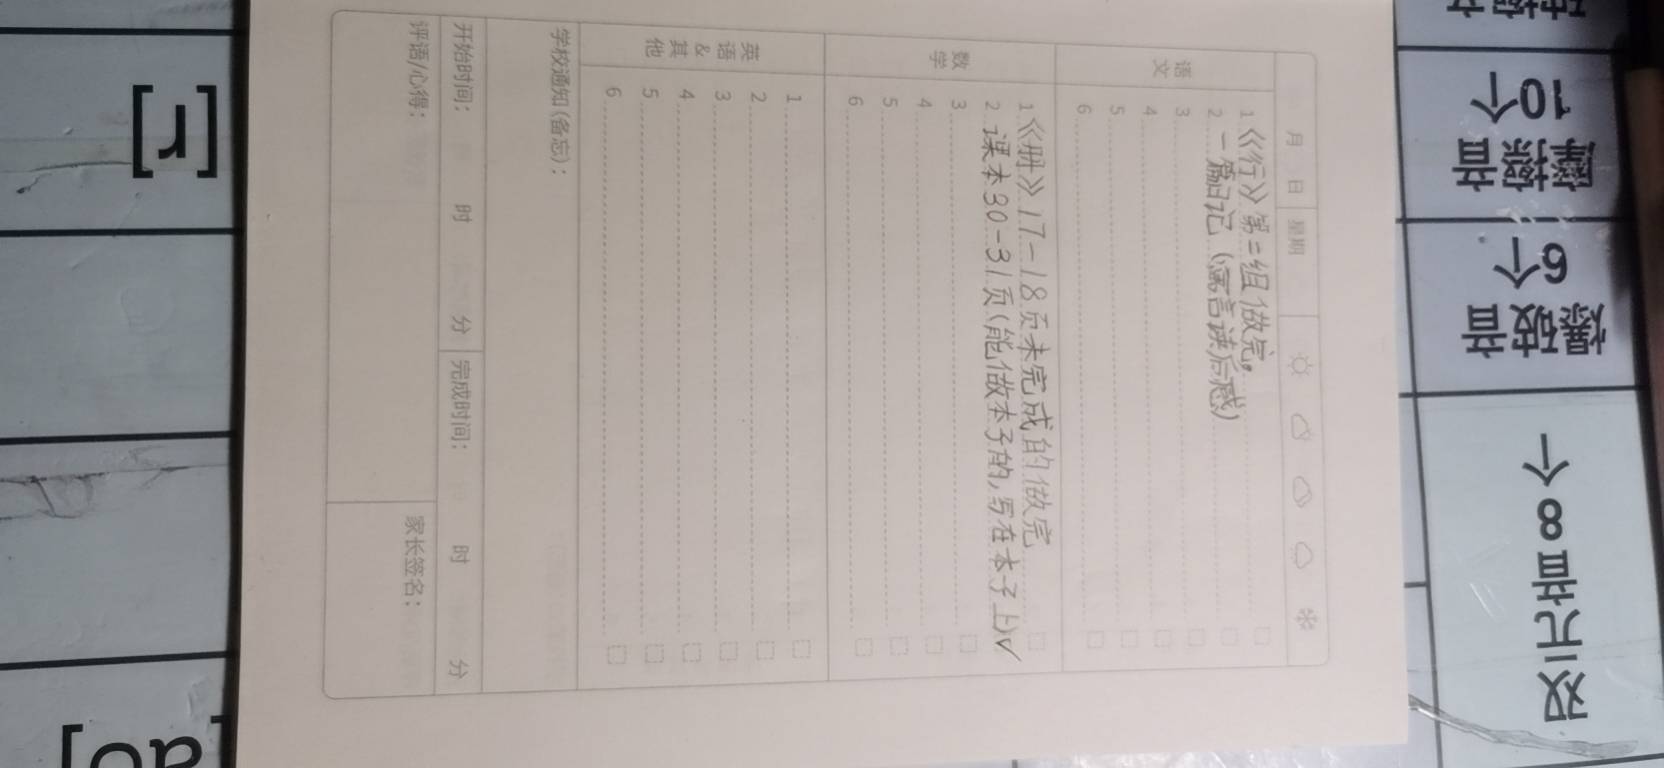 月 日 星期
语文
1 《行》第二组做完。
2 一篇日记(寓言读后感)
3
4
5
6
数学
1 《册》17-18页未完成的做完
2 课本30-31页(能做本子的,写在本子上)√
3
4
5
6
英语&其他
1
2
3
4
5
6
学校通知(备忘):
开始时间: 时 分 完成时间: 时 分
评语/心得:
家长签名:
[r]
双元音8个
爆破音
6个
摩擦音
10个